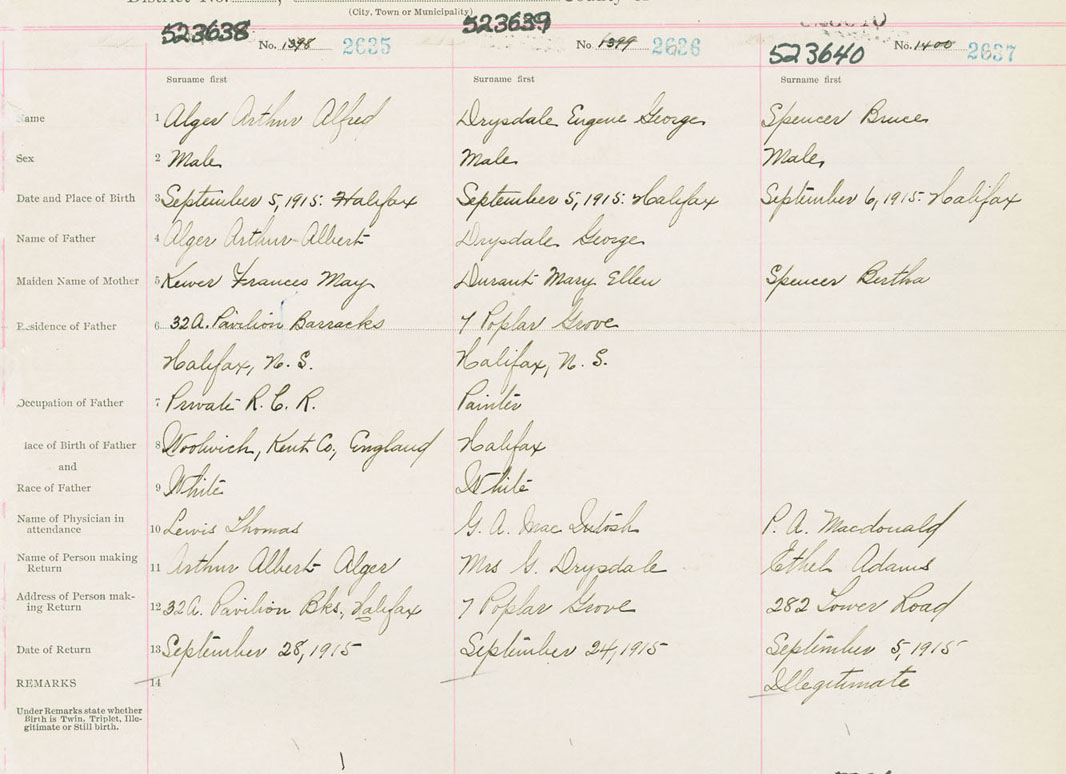 (City, Town or Municipality)
523638 No. 1398 2635 523639 No. 1399 2636 523640 No. 1400 2637
Surname first Surname first Surname first
ame 1 Alger Arthur Alfred Drysdale Eugene George Spencer Bruce
Sex 2 Male Male Male
Date and Place of Birth 3 September 5, 1915: Halifax September 5, 1915: Halifax September 6, 1915: Halifax
Name of Father 4 Alger Arthur Albert Drysdale George
Maiden Name of Mother 5 Kewer Frances May Durant Mary Ellen Spencer Bertha
Residence of Father 6 32A. Pavilion Barracks 7 Poplar Grove
Halifax, N. S. Halifax, N. S.
Occupation of Father 7 Private R. C. R. Painter
lace of Birth of Father 8 Woolwich, Kent Co., England Halifax
and
Race of Father 9 White White
Name of Physician in
attendance 10 Lewis Thomas G. A. Mac Intosh P. A. Macdonald
Name of Person making
Return 11 Arthur Albert Alger Mrs G. Drysdale Ethel Adams
Address of Person mak-
ing Return 12 32A. Pavilion Bks, Halifax 7 Poplar Grove 282 Lower Road
Date of Return 13 September 28, 1915 September 24, 1915 September 5, 1915
REMARKS 14 Illegitimate
Under Remarks state whether
Birth is Twin, Triplet, Ille-
gitimate or Still birth.